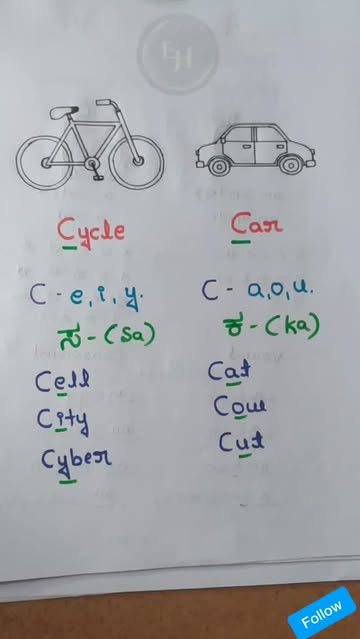 EH
Cycle
Car
C - e, i, y.
C - a, o, u.
ಸ - (Sa)
ಕ - (ka)
Cell
Cat
City
Cow
Cyber
Cut
Follow